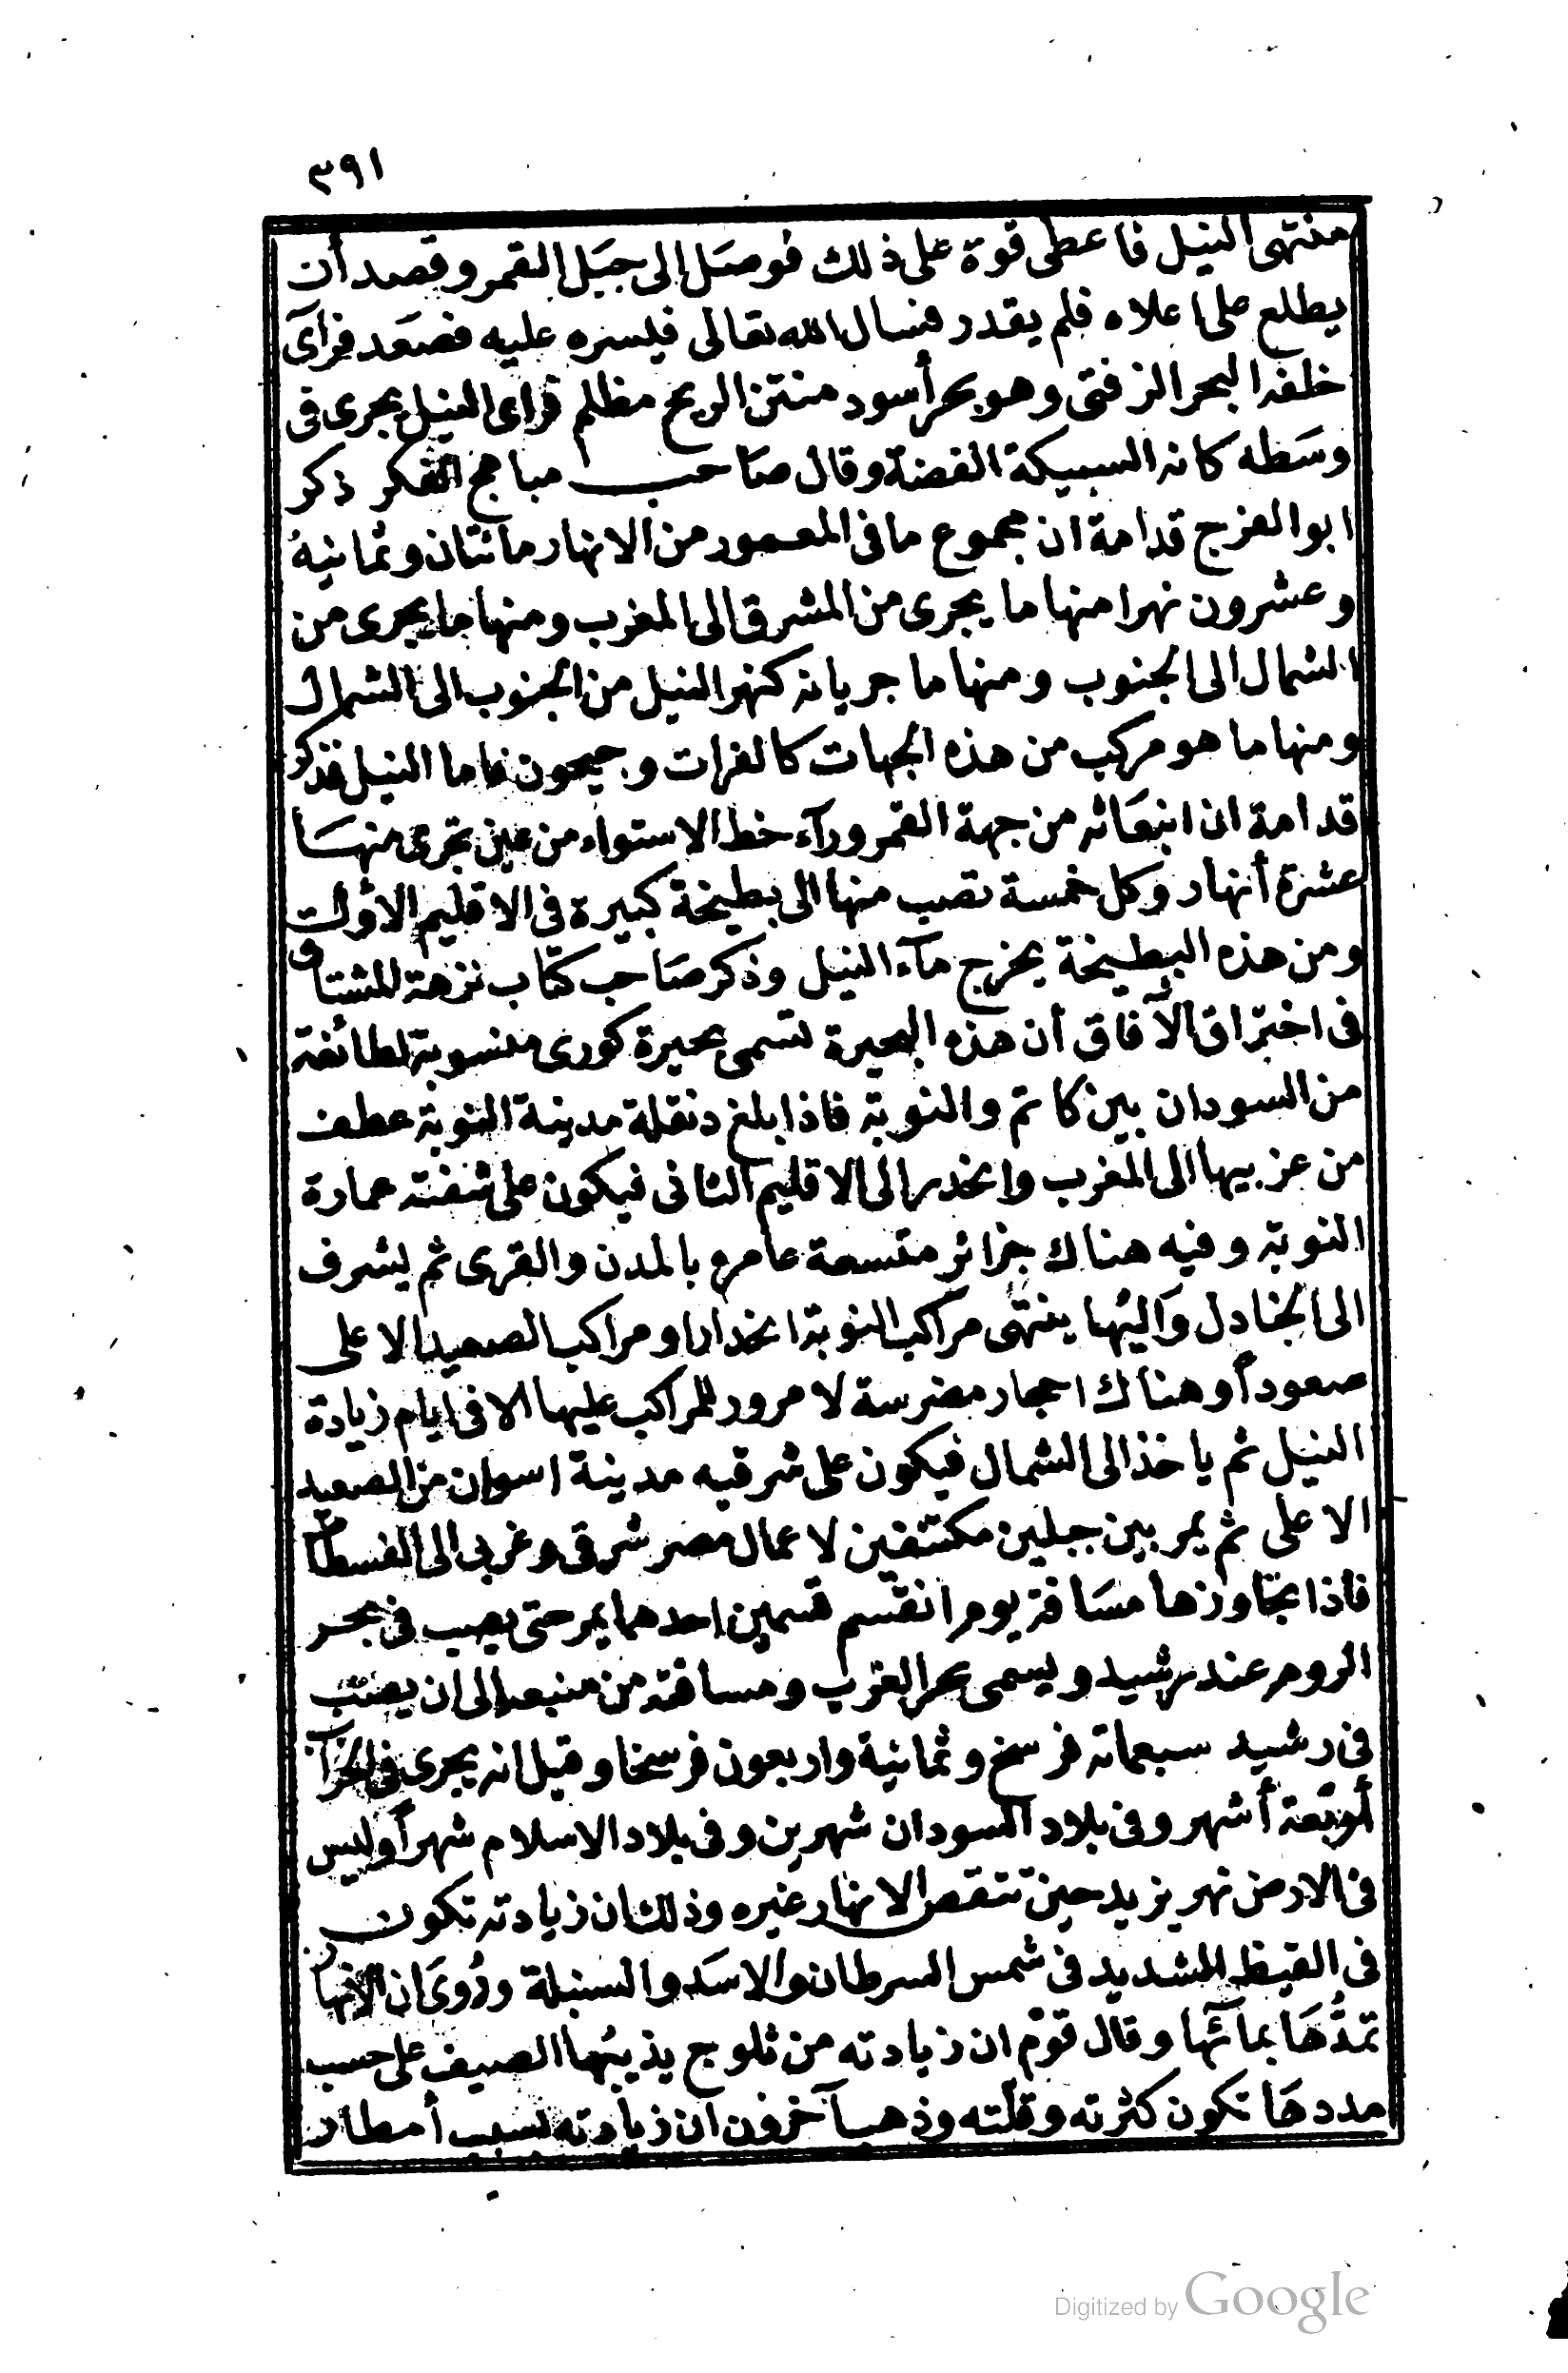 ٣٩١
منتهى النيل فاعطى قوة على ذلك فوصل الى جبل القمر وقصد أن
يطلع على اعلاه فلم يقدر فسال الله تعالى فيسره عليه فصعد فرآى
خلفه البحر الزفتى وهو بحر أسود منتن الريح مظلم فراى النيل يجرى فى
وسطه كانه السبيكة الفضة وقال صاحب مباهج الفكر ذكر
ابو الفرج قدامة ان مجموع ما فى المعمور من الانهار مائتان وثمانية
وعشرون نهرا منها ما يجرى من المشرق الى المغرب ومنها ما يجرى من
الشمال الى الجنوب ومنها ما جريانه كنهر النيل من الجنوب الى الشمال
ومنها ما هو مركب من هذه الجهات كالفرات وجيحون فاما النيل فذكر
قدامة ان انبعاثه من جهة القمر ورآء خط الاستواء من عين تجرى منها
عشرة أنهار وكل خمسة تصب منها الى بطيخة كبيرة فى الاقليم الأول
ومن هذه البطيخة يخرج مآء النيل وذكر صاحب كتاب نزهة المشتاق
فى اختراق الآفاق أن هذه البحيرة تسمى بحيرة كورى منسوبة لطائفة
من السودان بين كانم والنوبة فاذا بلغ دنقلة مدينة النوبة عطف
من غربيها الى المغرب وانحدر الى الاقليم الثانى فيكون على شفته عمارة
النوبة وفيه هناك جزائر متسعة عامرة بالمدن والقرى ثم يشرف
الى الجنادل وآليها ينتهى مراكب النوبة انحدارا ومراكب الصعيد الاعلى
صعودأ وهناك احجار مضرسة لا مرور للمراكب عليها الا فى ايام زيادة
النيل ثم ياخذ الى الشمال فيكون على شرقيه مدينة اسوان من الصعيد
الاعلى ثم يمر بين جبلين مكتنفين لاعمال مصر شرقى وغربى الى الفسطاط
فاذا تجاوزها مسافة يوم انقسم قسمين احدهما يمر حتى يصب فى بحر
الروم عند رشيد ويسمى بحر الغرب ومسافته من منبعه الى ان يصب
فى رشيد سبعماته فرسخ وثمانية واربعون فرسخا وقيل انه يجرى فى الخراب
أربعة أشهر وفى بلاد السودان شهرين وفى بلاد الاسلام شهرأ وليس
فى الارض نهر يزيد حين تنقص الانهار غيره وذلك ان زيادته تكون
فى القيظ الشديد فى شمس السرطان والاسد والسنبلة ورُوى ان الانهار
تمدُّها بمآئها وقال قوم ان زيادته من ثلوج يذيبُها الصيف على حسب
مددها تكون كثرته وقلته وذهب آخرون ان زيادته بسبب أمطار
Digitized by Google